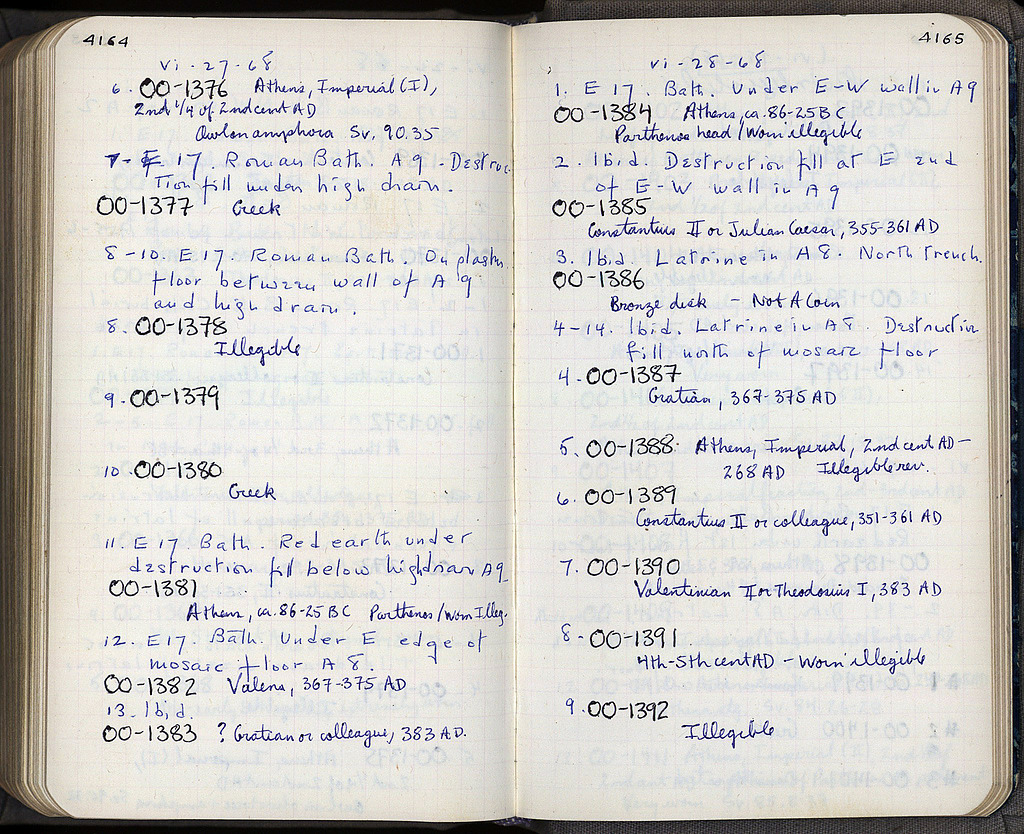 4164
vi-27-68
6. OO-1376 Athens, Imperial (I),
2nd 1/4 of 2nd cent AD
Owl on amphora Sv. 90.35
7- E 17. Roman Bath. A 9 - Destruc
tion fill under high drain.
OO-1377 Greek
8-10. E 17. Roman Bath. On plaster
floor between wall of A 9
and high drain.
8. OO-1378
Illegible
9. OO-1379
10. OO-1380
Greek
11. E 17. Bath. Red earth under
destruction fill below high drain A 9
OO-1381
Athens, ca. 86-25 BC Parthenos/Worn Illeg.
12. E 17. Bath. Under E edge of
mosaic floor A 8.
OO-1382 Valens, 367-375 AD
13. Ibid.
OO-1383 ? Gratian or colleague, 383 AD.
4165
vi-28-68
1. E 17. Bath. Under E-W wall in A 9
OO-1384 Athens, ca. 86-25 BC
Parthenos head/Worn illegible
2. Ibid. Destruction fill at E end
of E-W wall in A 9
OO-1385
Constantius II or Julian Caesar, 355-361 AD
3. Ibid. Latrine in A 8. North Trench.
OO-1386
Bronze disk - Not A Coin
4-14. Ibid. Latrine in A 8. Destruction
fill north of mosaic floor
4. OO-1387
Gratian, 367-375 AD
5. OO-1388. Athens, Imperial, 2nd cent AD-
268 AD Illegible rev.
6. OO-1389
Constantius II or colleague, 351-361 AD
7. OO-1390
Valentinian II or Theodosius I, 383 AD
8- OO-1391
4th-5th cent AD - Worn illegible
9. OO-1392
Illegible